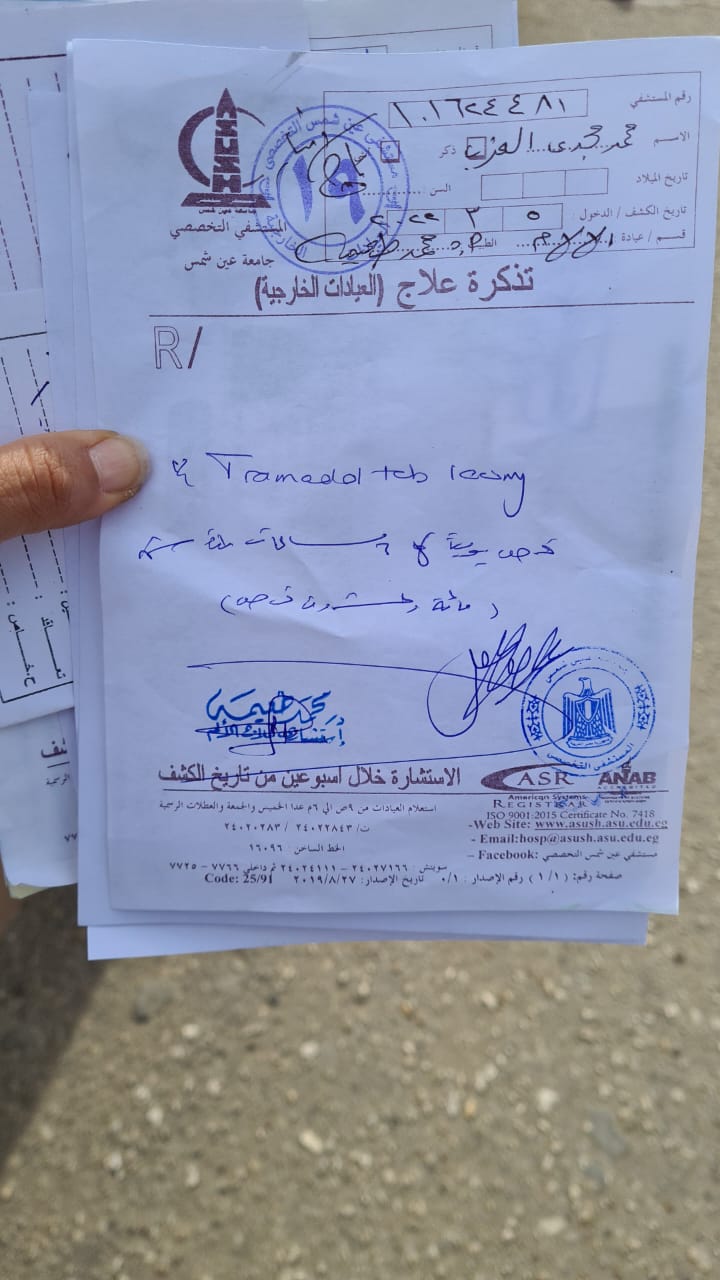 رقم المستشفي ١٠١٦٢٤٤٨١
الاسم محمد مجدى العزب ذكر
تاريخ الميلاد السن
تاريخ الكشف / الدخول : ٥ ٣ ٢٠٢٢
قسم / عيادة الطبيب د. محمد
ASUSH
جامعة عين شمس
المستشفي التخصصي
جامعة عين شمس
١٩
تذكرة علاج (العيادات الخارجية)
R/
Tramadol tab 100mg
قرص يوميا كل ساعات لمدة
(مائة وعشرون قرص)
محمد
الاستشارة خلال اسبوعين من تاريخ الكشف
ASR
American Systems
REGISTRAR
ANAB
ACCREDITED
ISO 9001:2015 Certificate No. 7418
استعلام العيادات من ٩ص الي ٦م عدا الخميس والجمعة والعطلات الرسمية
-Web Site: www.asush.asu.edu.eg
ت/ ٢٤٠٢٢٨٤٣ / ٢٤٠٢٠٢٨٣
- Email:hosp@asush.asu.edu.eg
الخط الساخن: ١٦٠٩٦
– Facebook: مستشفي عين شمس التخصصي
سويتش: ٢٤٠٢٧١٦٦ – ٢٤٠٢٤١١١ ثم داخلي ٧٧٦٦ – ٧٧٢٥
صفحة رقم: (١/١) رقم الإصدار : ٠/١ تاريخ الإصدار: ٢٠١٩/٨/٢٧ Code: 25/91